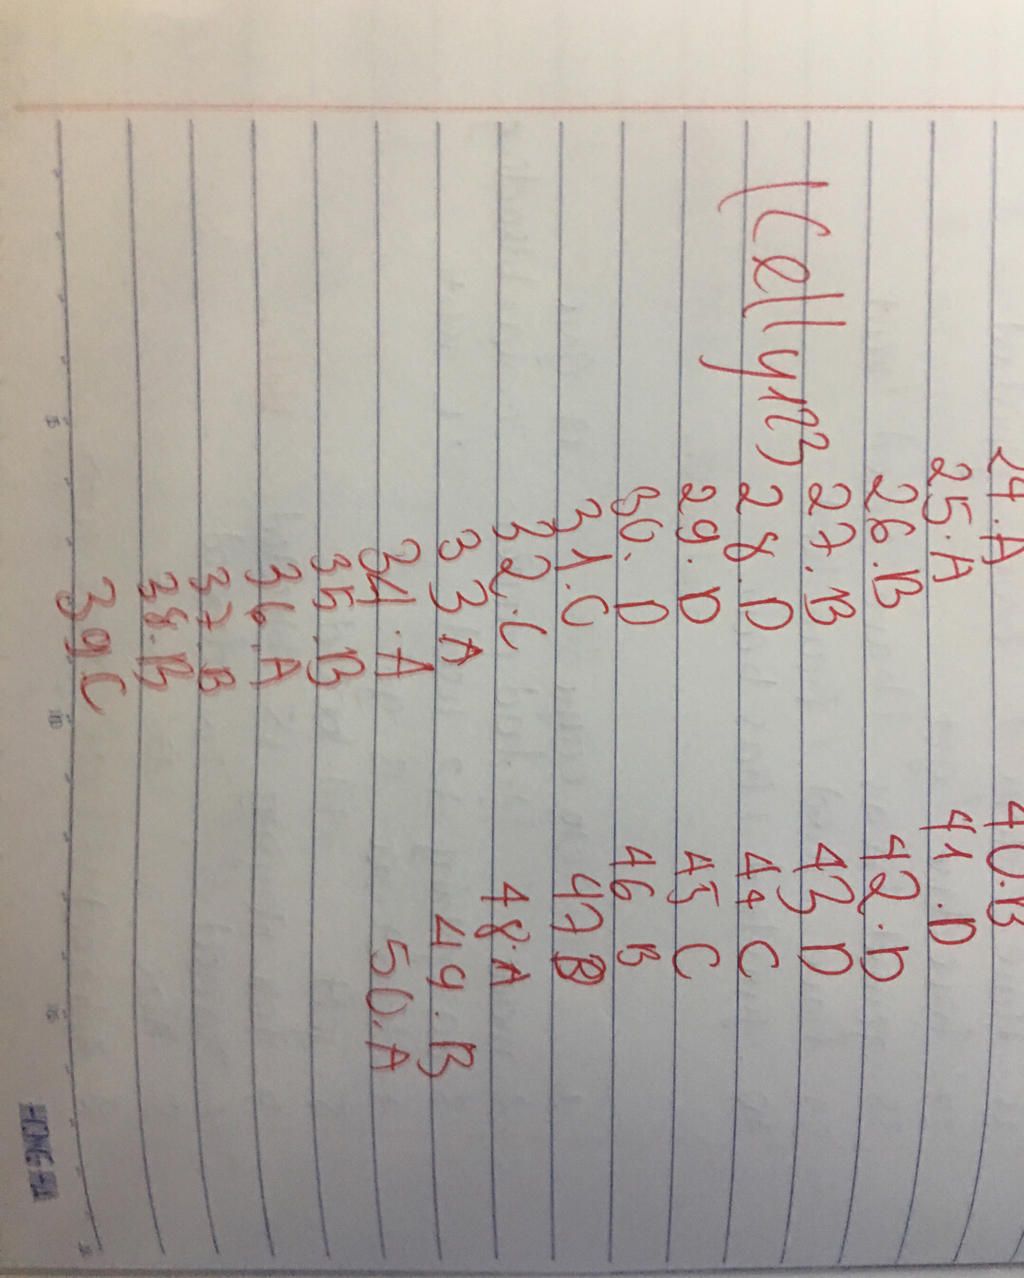 24.A
25.A
26.B
27.B
28.D
29.D
30.D
31.C
32.C
33A
34.A
35.B
36.A
37.B
38.B
39C
40.B
41.D
42.D
43D
44C
45C
46B
47B
48.A
49.B
50.A